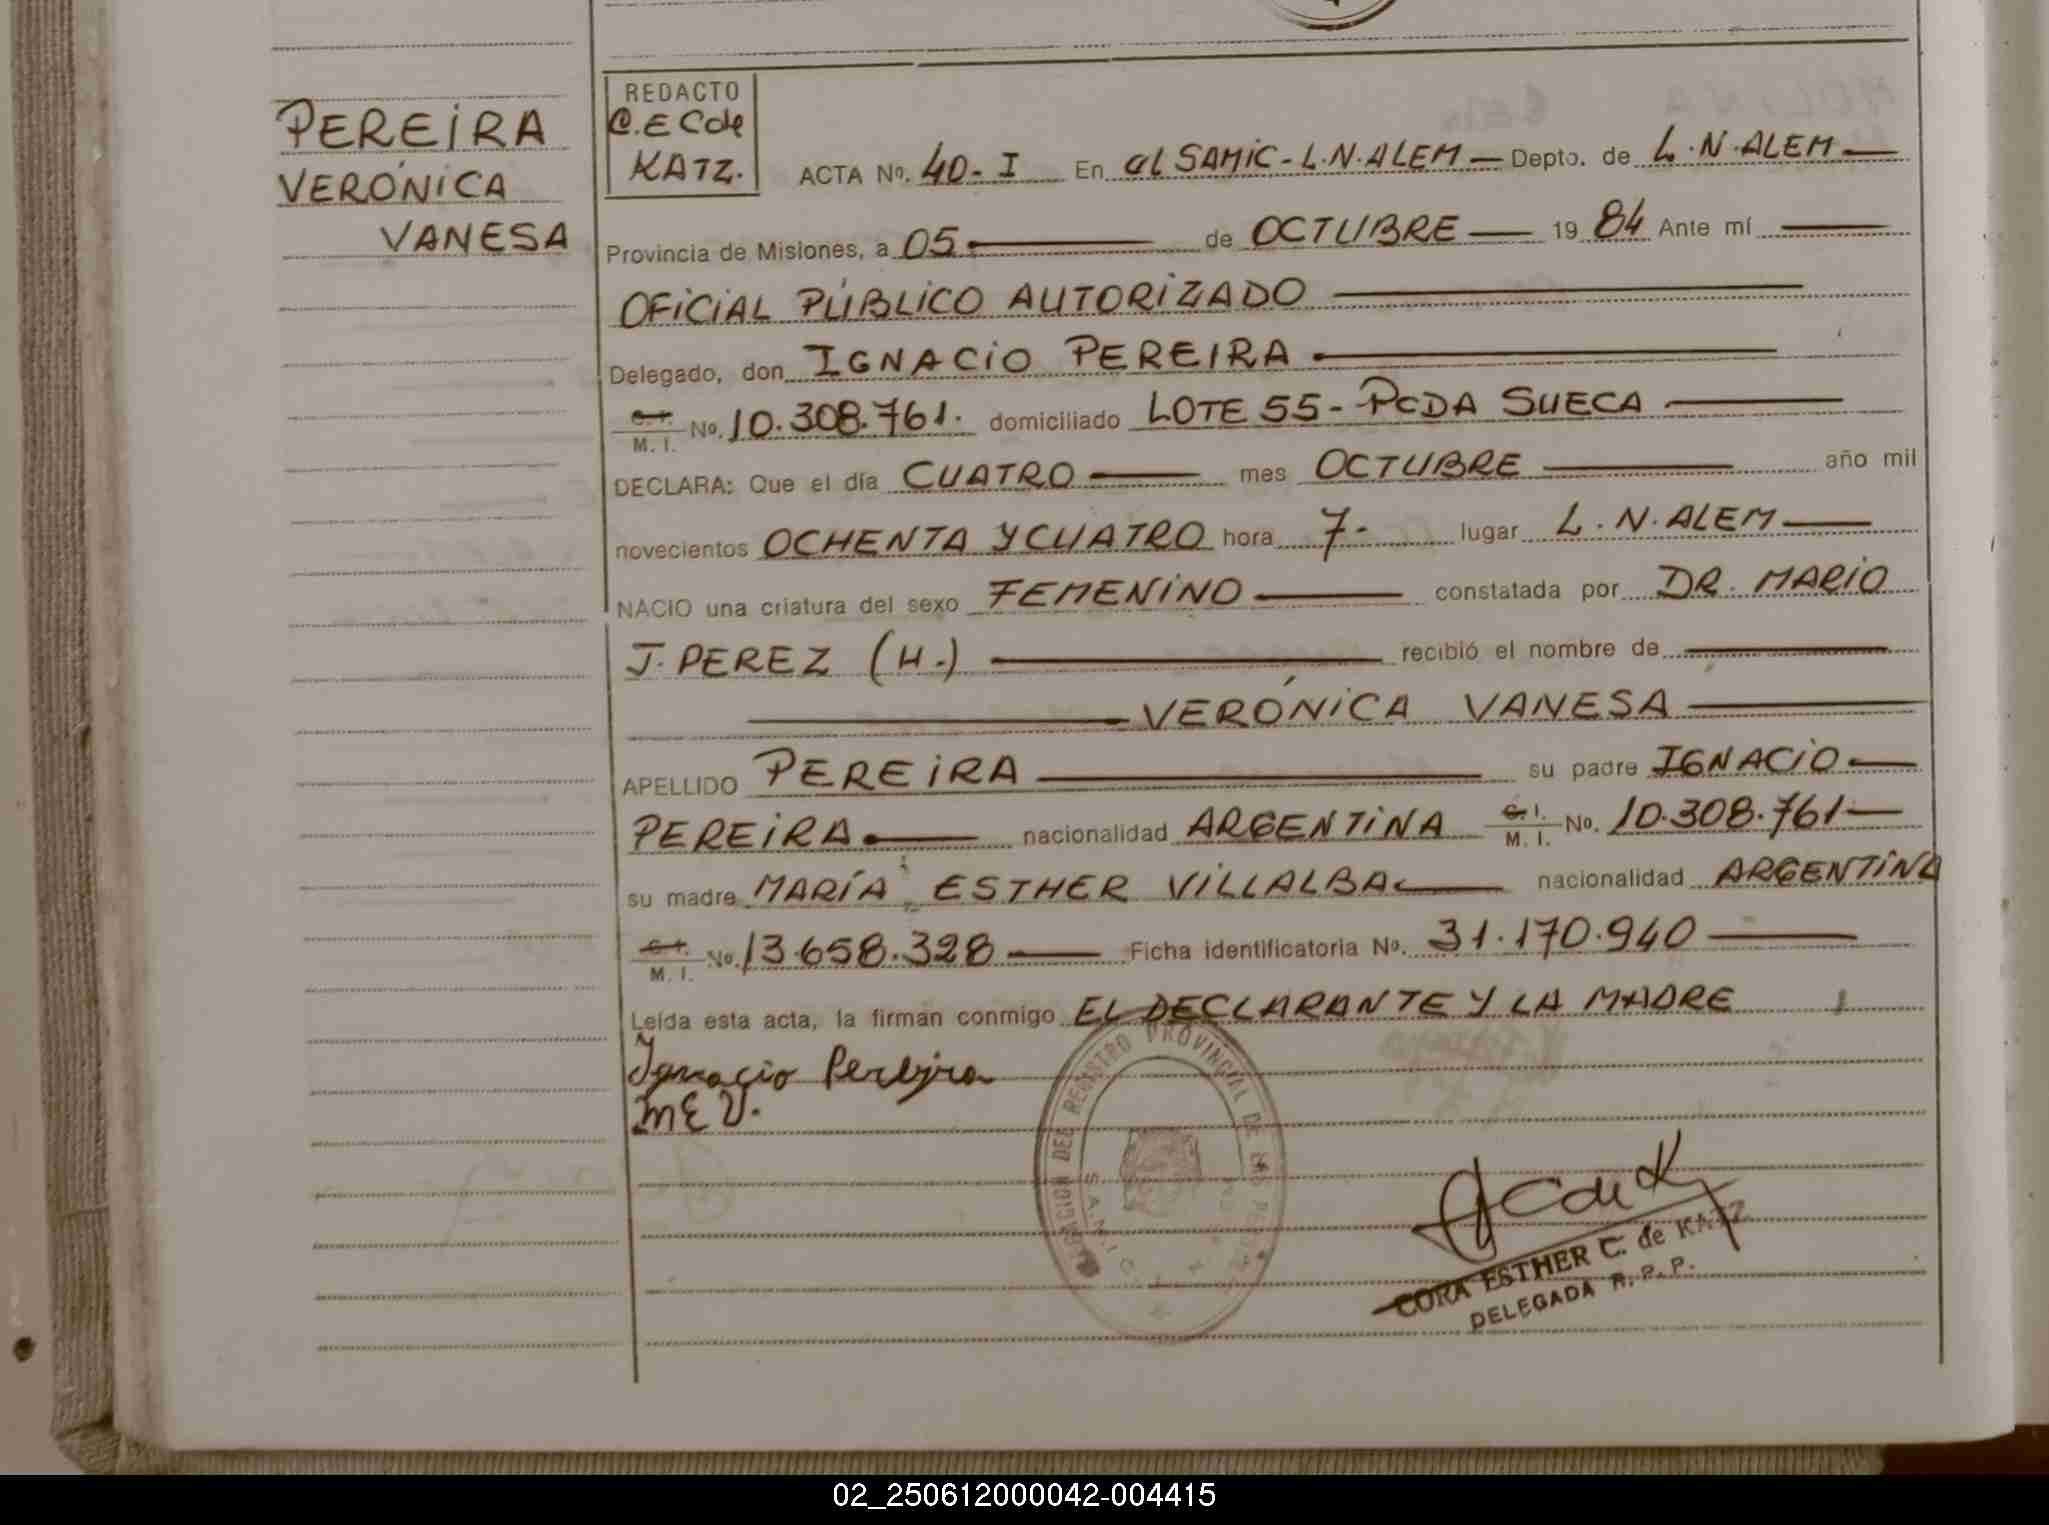 PEREIRA
VERÓNICA
VANESA
REDACTO
C.E C de
KATZ.
ACTA No. 40-I En al SAMIC-L.N.ALEM Depto. de L.N.ALEM
Provincia de Misiones, a 05 de OCTUBRE 1984 Ante mí
OFICIAL PÚBLICO AUTORIZADO
Delegado, don IGNACIO PEREIRA
C.I. M.I. No. 10.308.761. domiciliado LOTE 55-PCDA SUECA
DECLARA: Que el día CUATRO mes OCTUBRE año mil
novecientos OCHENTA Y CUATRO hora 7- lugar L.N.ALEM
NACIO una criatura del sexo FEMENINO constatada por DR. MARIO
J. PEREZ (H.) recibió el nombre de
VERÓNICA VANESA
APELLIDO PEREIRA su padre IGNACIO
PEREIRA nacionalidad ARGENTINA C.I. M.I. No. 10.308.761
su madre MARÍA ESTHER VILLALBA nacionalidad ARGENTINA
C.I. M.I. No. 13.658.328 Ficha identificatoria No. 31.170.940
Leída esta acta, la firman conmigo EL DECLARANTE Y LA MADRE
Ignacio Pereira
M E V.
DEL REGISTRO PROVINCIAL DE
S.A.M.I.C.
CORA ESTHER C. de KATZ
DELEGADA R.P.P.
02_250612000042-004415